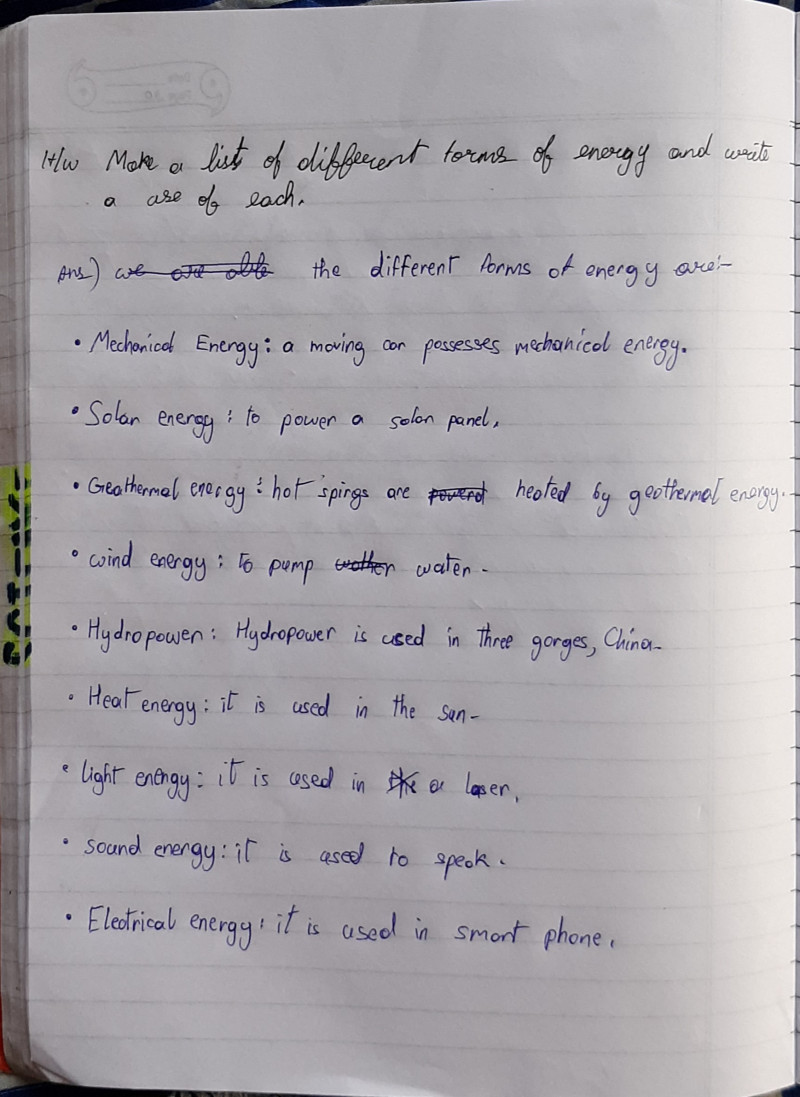 H/w Make a list of different forms of energy and write
a use of each.
Ans) we are able the different forms of energy are:-
• Mechanical Energy: a moving car possesses mechanical energy.
• Solar energy: to power a solar panel.
• Geothermal energy: hot spings are heated by geothermal energy.
• wind energy: to pump water.
• Hydropower: Hydropower is used in three gorges, China.
• Heat energy: it is used in the sun.
• light energy: it is used in a laser.
• sound energy: it is used to speak.
• Electrical energy: it is used in smart phone.